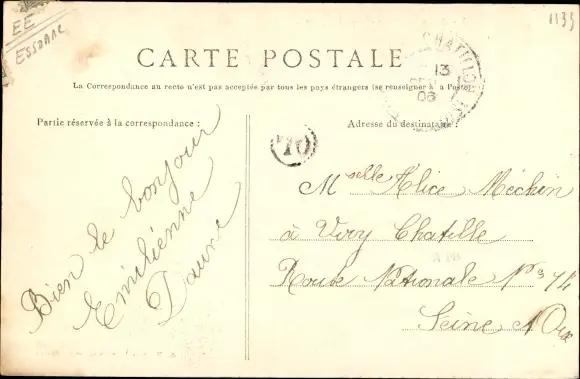 EE
ESSONNE
1135
CARTE POSTALE
CHATILLON
13
06
La Correspondance au recto n'est pas acceptée par tous les pays étrangers (se renseigner à la Poste)
Partie réservée à la correspondance :
Adresse du destinataire :
Bien le bonjour
Emilienne
Daure
Mselle Alice Méchin
à Viry Chatille
Route Nationale N° 74
Seine & Oise